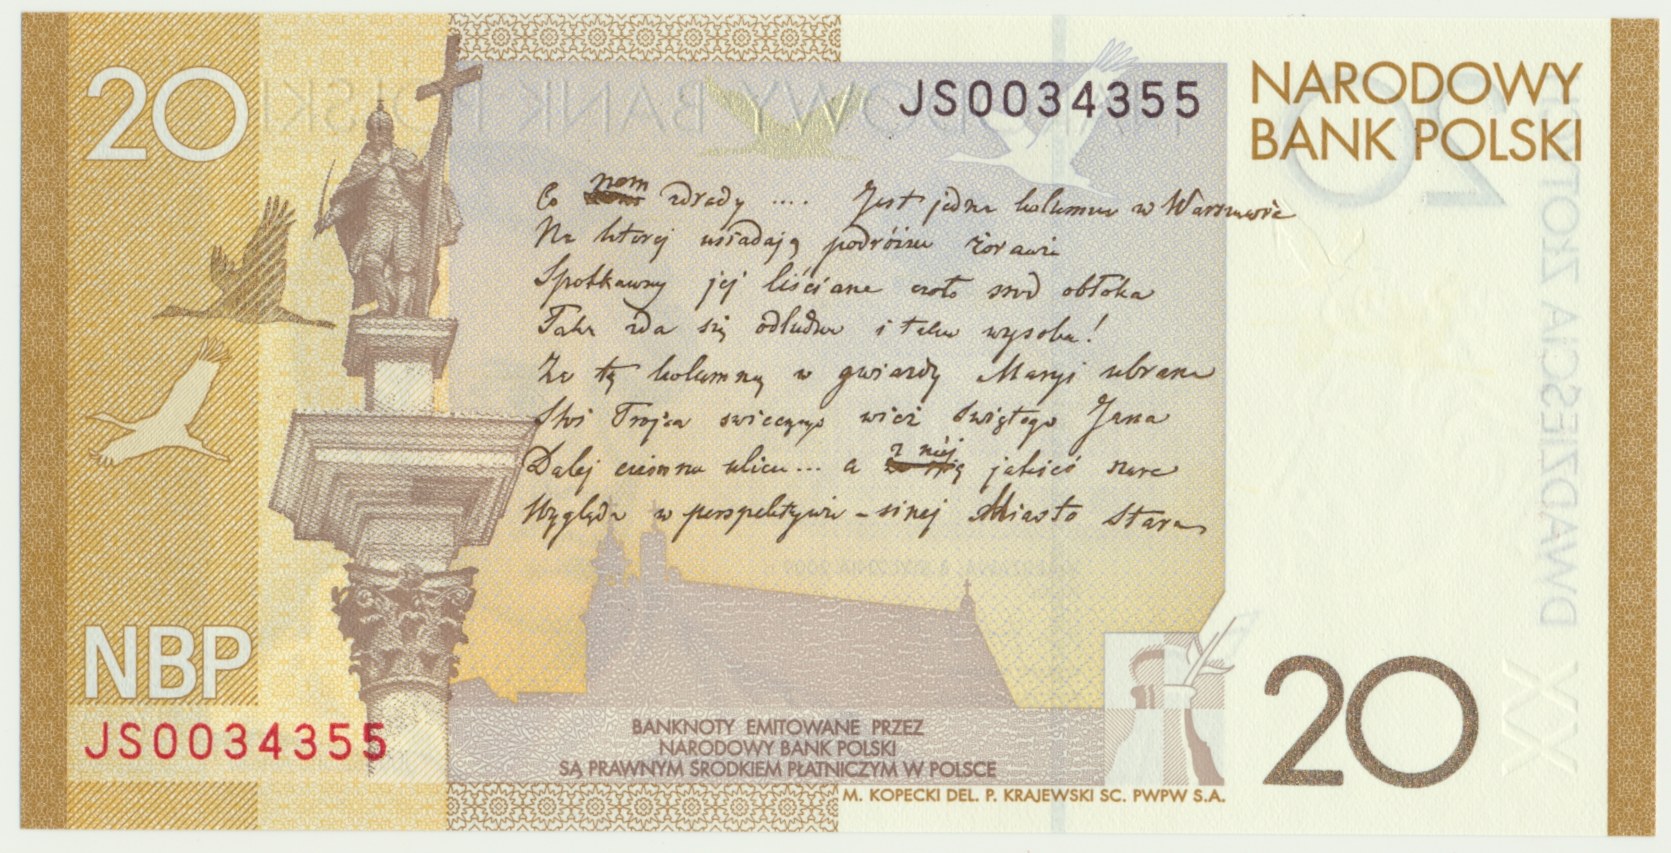 20
JS0034355
NARODOWY
BANK POLSKI
Co nam zdrady .... Jest jedna kolumna w Warszawie
Na której usiadają podróżne żorawie
Spotkawszy jej liściane czoło śród obłoka
Taka zda się odludna i taka wysoka!
Za tą kolumną w gwiazdy Maryi ubrana
Stoi Trójca świecącego wież świętego Jana
Dalej ciemna ulica... a z niéj jakieś szare
Wygląda w perspektywie - sinej Miasto Stare
NBP
JS0034355
BANKNOTY EMITOWANE PRZEZ
NARODOWY BANK POLSKI
SĄ PRAWNYM ŚRODKIEM PŁATNICZYM W POLSCE
M. KOPECKI DEL. P. KRAJEWSKI SC. PWPW S.A.
20
NARODOWY BANK POLSKI
DWADZIEŚCIA ZŁOTYCH